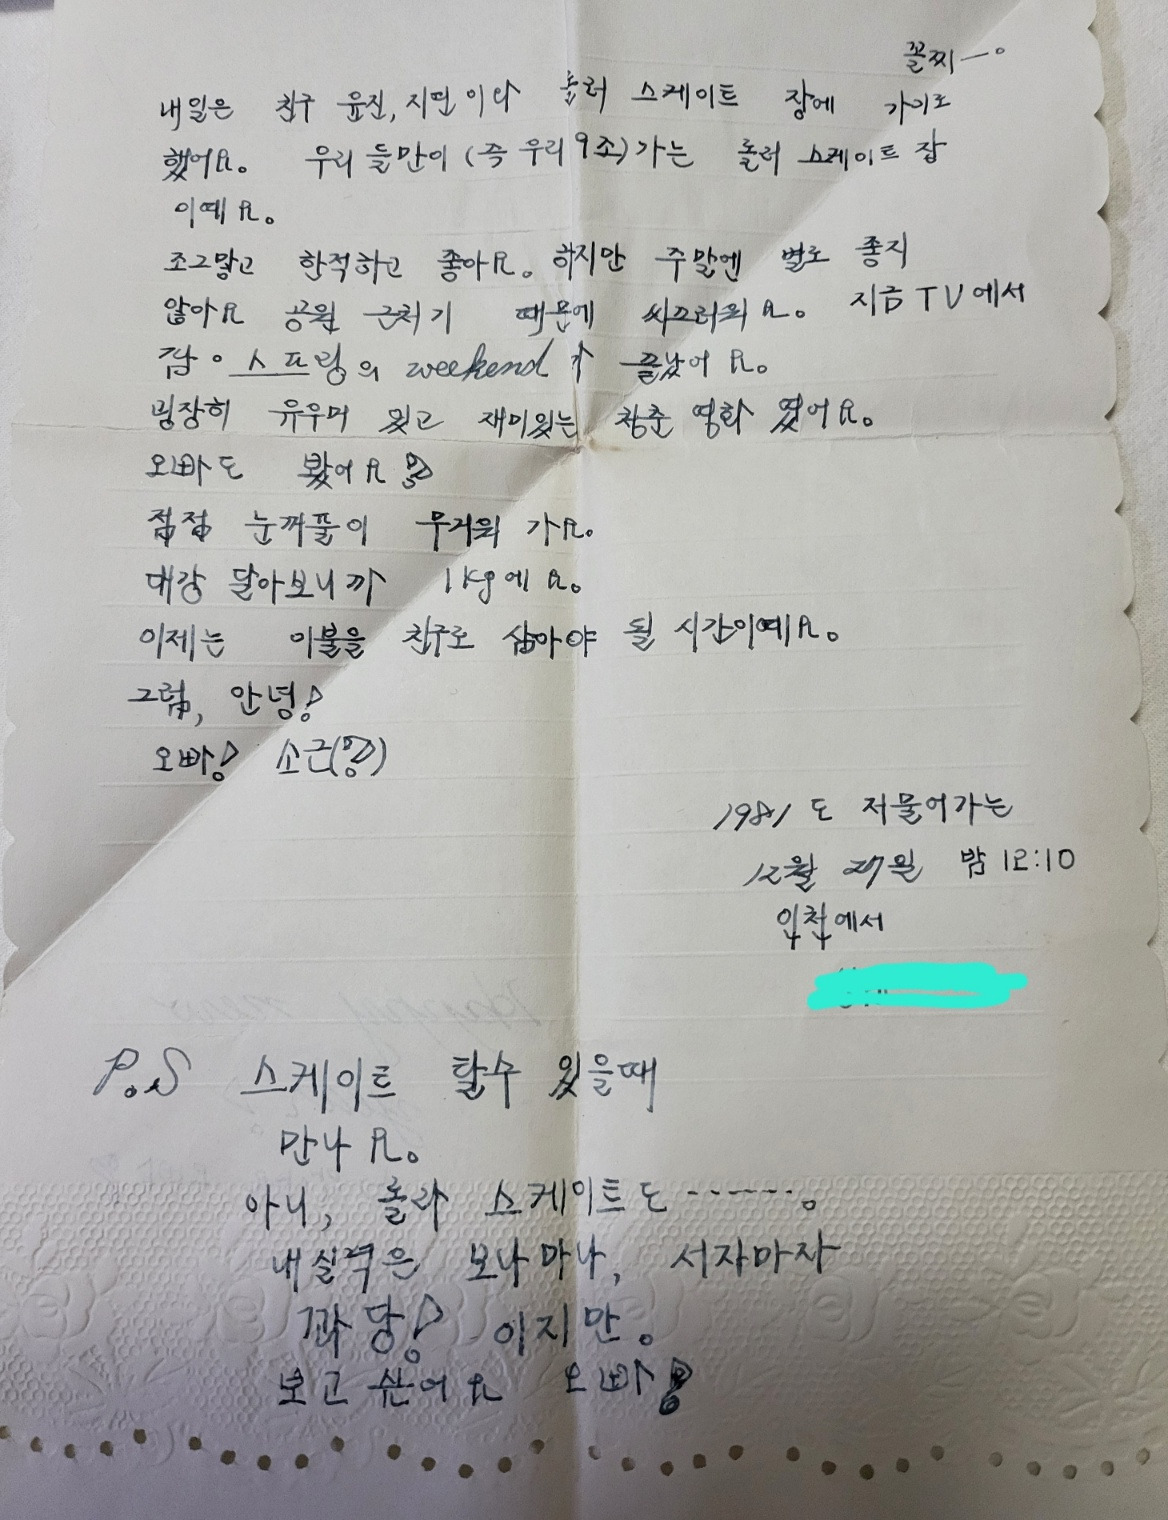 꼴찌—。
내일은 친구 윤진, 지면이랑 롤러 스케이트 장에 가기로
했어요. 우리 들만이 (즉 우리 9조) 가는 롤러 스케이트 장
이예요.
조그맣고 한적하고 좋아요. 하지만 주말엔 별로 좋지
않아요 공원 근처기 때문에 싸끄러워요. 지금 TV에서
스프링의 weekend 가 끝났어요.
굉장히 유우머 있고 재미있는 청춘 영화 였어요.
오빠도 봤어요?
점점 눈꺼풀이 무거워 가요.
대강 달아보니까 1kg에요.
이제는 이불을 친구로 삼아야 될 시간이예요.
그럼, 안녕!
오빠! 소근(?)
1981도 저물어가는
12월 27일 밤 12:10
인천에서
P.S 스케이트 탈수 있을때
만나요.
아니, 롤라 스케이트도 -------。
내실력은 보나마나, 서자마자
꽈당! 이지만.
보고 싶어요 오빠!